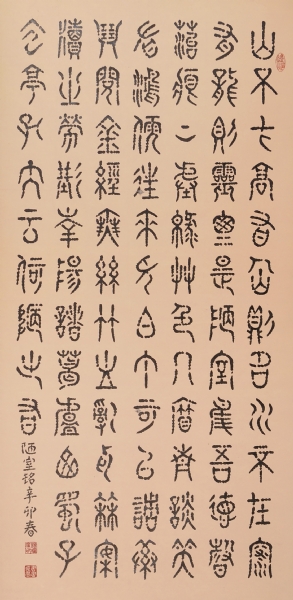 山不在高有仙則名水不在深
有龍則靈斯是陋室惟吾德馨
苔痕上階綠艸色入簾青談笑
有鴻儒往來無白丁可以調素
琴閱金經無絲竹之亂耳無案
牘之勞形南陽諸葛廬西蜀子
云亭孔子云何陋之有
陋室銘辛卯春